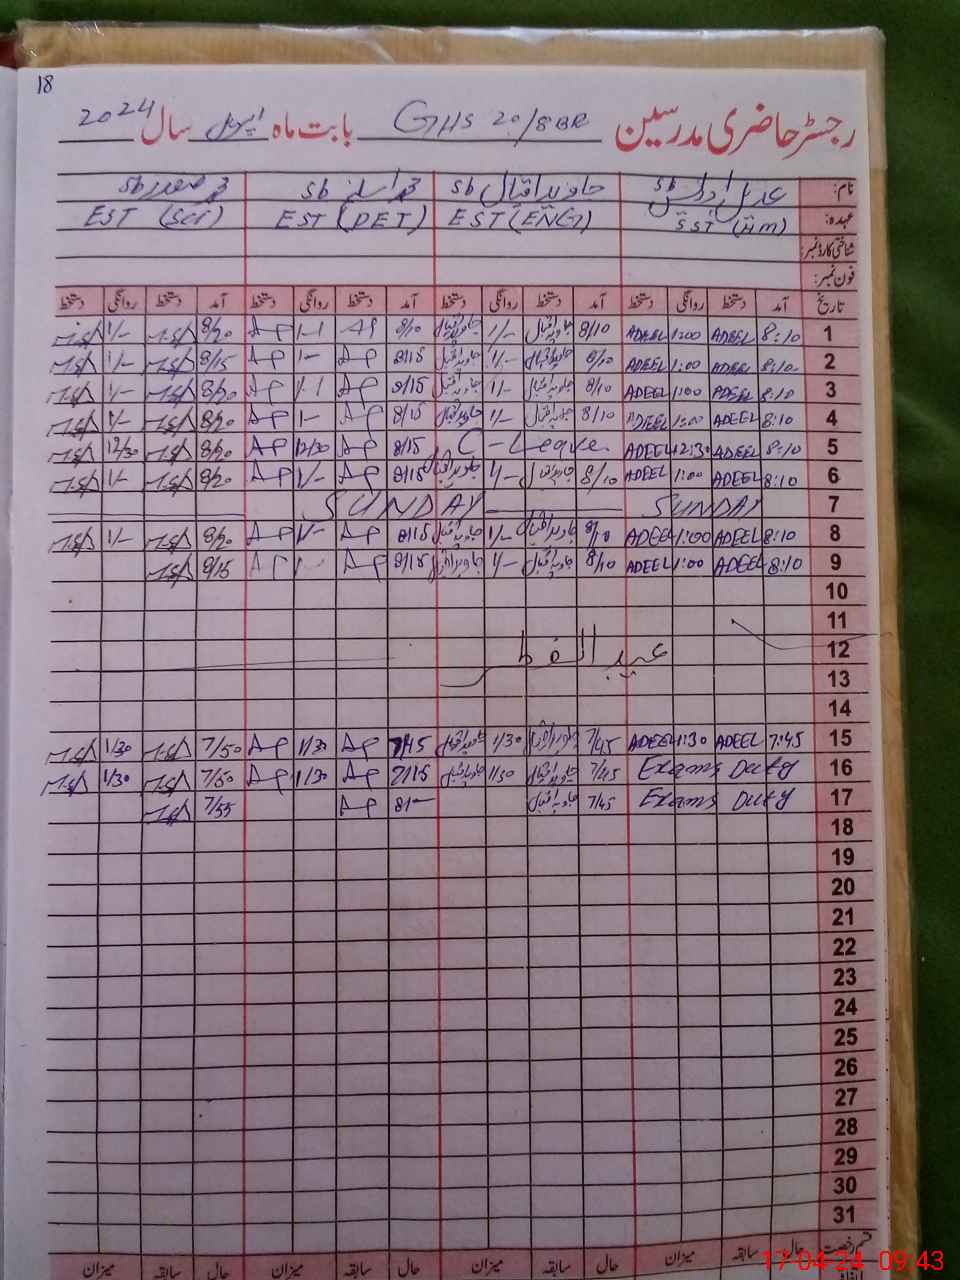 18
رجسٹر حاضری مدرسین GHS 20/8BR بابت ماہ اپریل سال 2024
نام: عدیل sb جاوید اقبال sb sb صفدر sb
عہدہ: SST (HM) EST (ENG) EST (DET) EST (Sci)
شناختی کارڈ نمبر:
فون نمبر:
تاریخ آمد دستخط روانگی دستخط آمد دستخط روانگی دستخط آمد دستخط روانگی دستخط آمد دستخط روانگی دستخط
1 8:10 ADEEL 1:00 ADEEL 8/10 جاوید اقبال 1/- جاوید اقبال 8/10 8/20 1/-
2 8:10 ADEEL 1:00 ADEEL 8/10 جاوید اقبال 1/- جاوید اقبال 8/15 1- 8/15 1/-
3 8:10 ADEEL 1:00 ADEEL 8/10 جاوید اقبال 1/- جاوید اقبال 8/15 8/20 1/-
4 8:10 ADEEL 1:00 ADEEL 8/10 جاوید اقبال 1/- جاوید اقبال 8/15 1- 8/20 1/-
5 8:10 ADEEL 12:30 ADEEL C-Leave 8/15 12/30 8/20 12/30
6 8:10 ADEEL 1:00 ADEEL 8/10 جاوید اقبال 1/- جاوید اقبال 8/15 1/- 8/20 1/-
7 SUNDAY SUNDAY
8 8:10 ADEEL 1:00 ADEEL 8/10 جاوید اقبال 1/- جاوید اقبال 8/15 1/- 8/20 1/-
9 8:10 ADEEL 1:00 ADEEL 8/10 جاوید اقبال 1/- جاوید اقبال 8/15 8/15
10
11
12 عید الفطر
13
14
15 7:45 ADEEL 1:30 ADEEL 7/45 جاوید اقبال 1/30 جاوید اقبال 7/45 1/30 7/50 1/30
16 Exams Duty 7/45 جاوید اقبال 1/30 جاوید اقبال 1/30 7/50 1/30
17 Exams Duty 7/45 جاوید اقبال 8/- 7/55
18
19
20
21
22
23
24
25
26
27
28
29
30
31
قسم رخصت حال سابقہ میزان حال سابقہ میزان حال سابقہ میزان حال سابقہ میزان
17-04-24 09:43